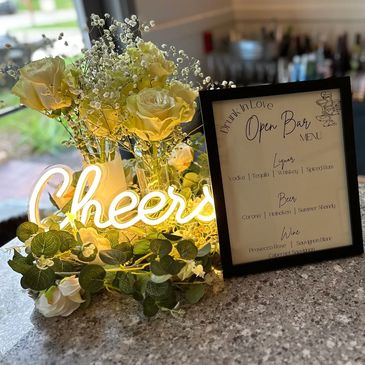 Cheers
Drunk In Love
Open Bar
MENU
Liquor
Vodka | Tequila | Whiskey | Spiced Rum
Beer
Corona | Heineken | Summer Shandy
Wine
Prosecco Rose | Sauvignon Blanc
Cabernet Sauvignon